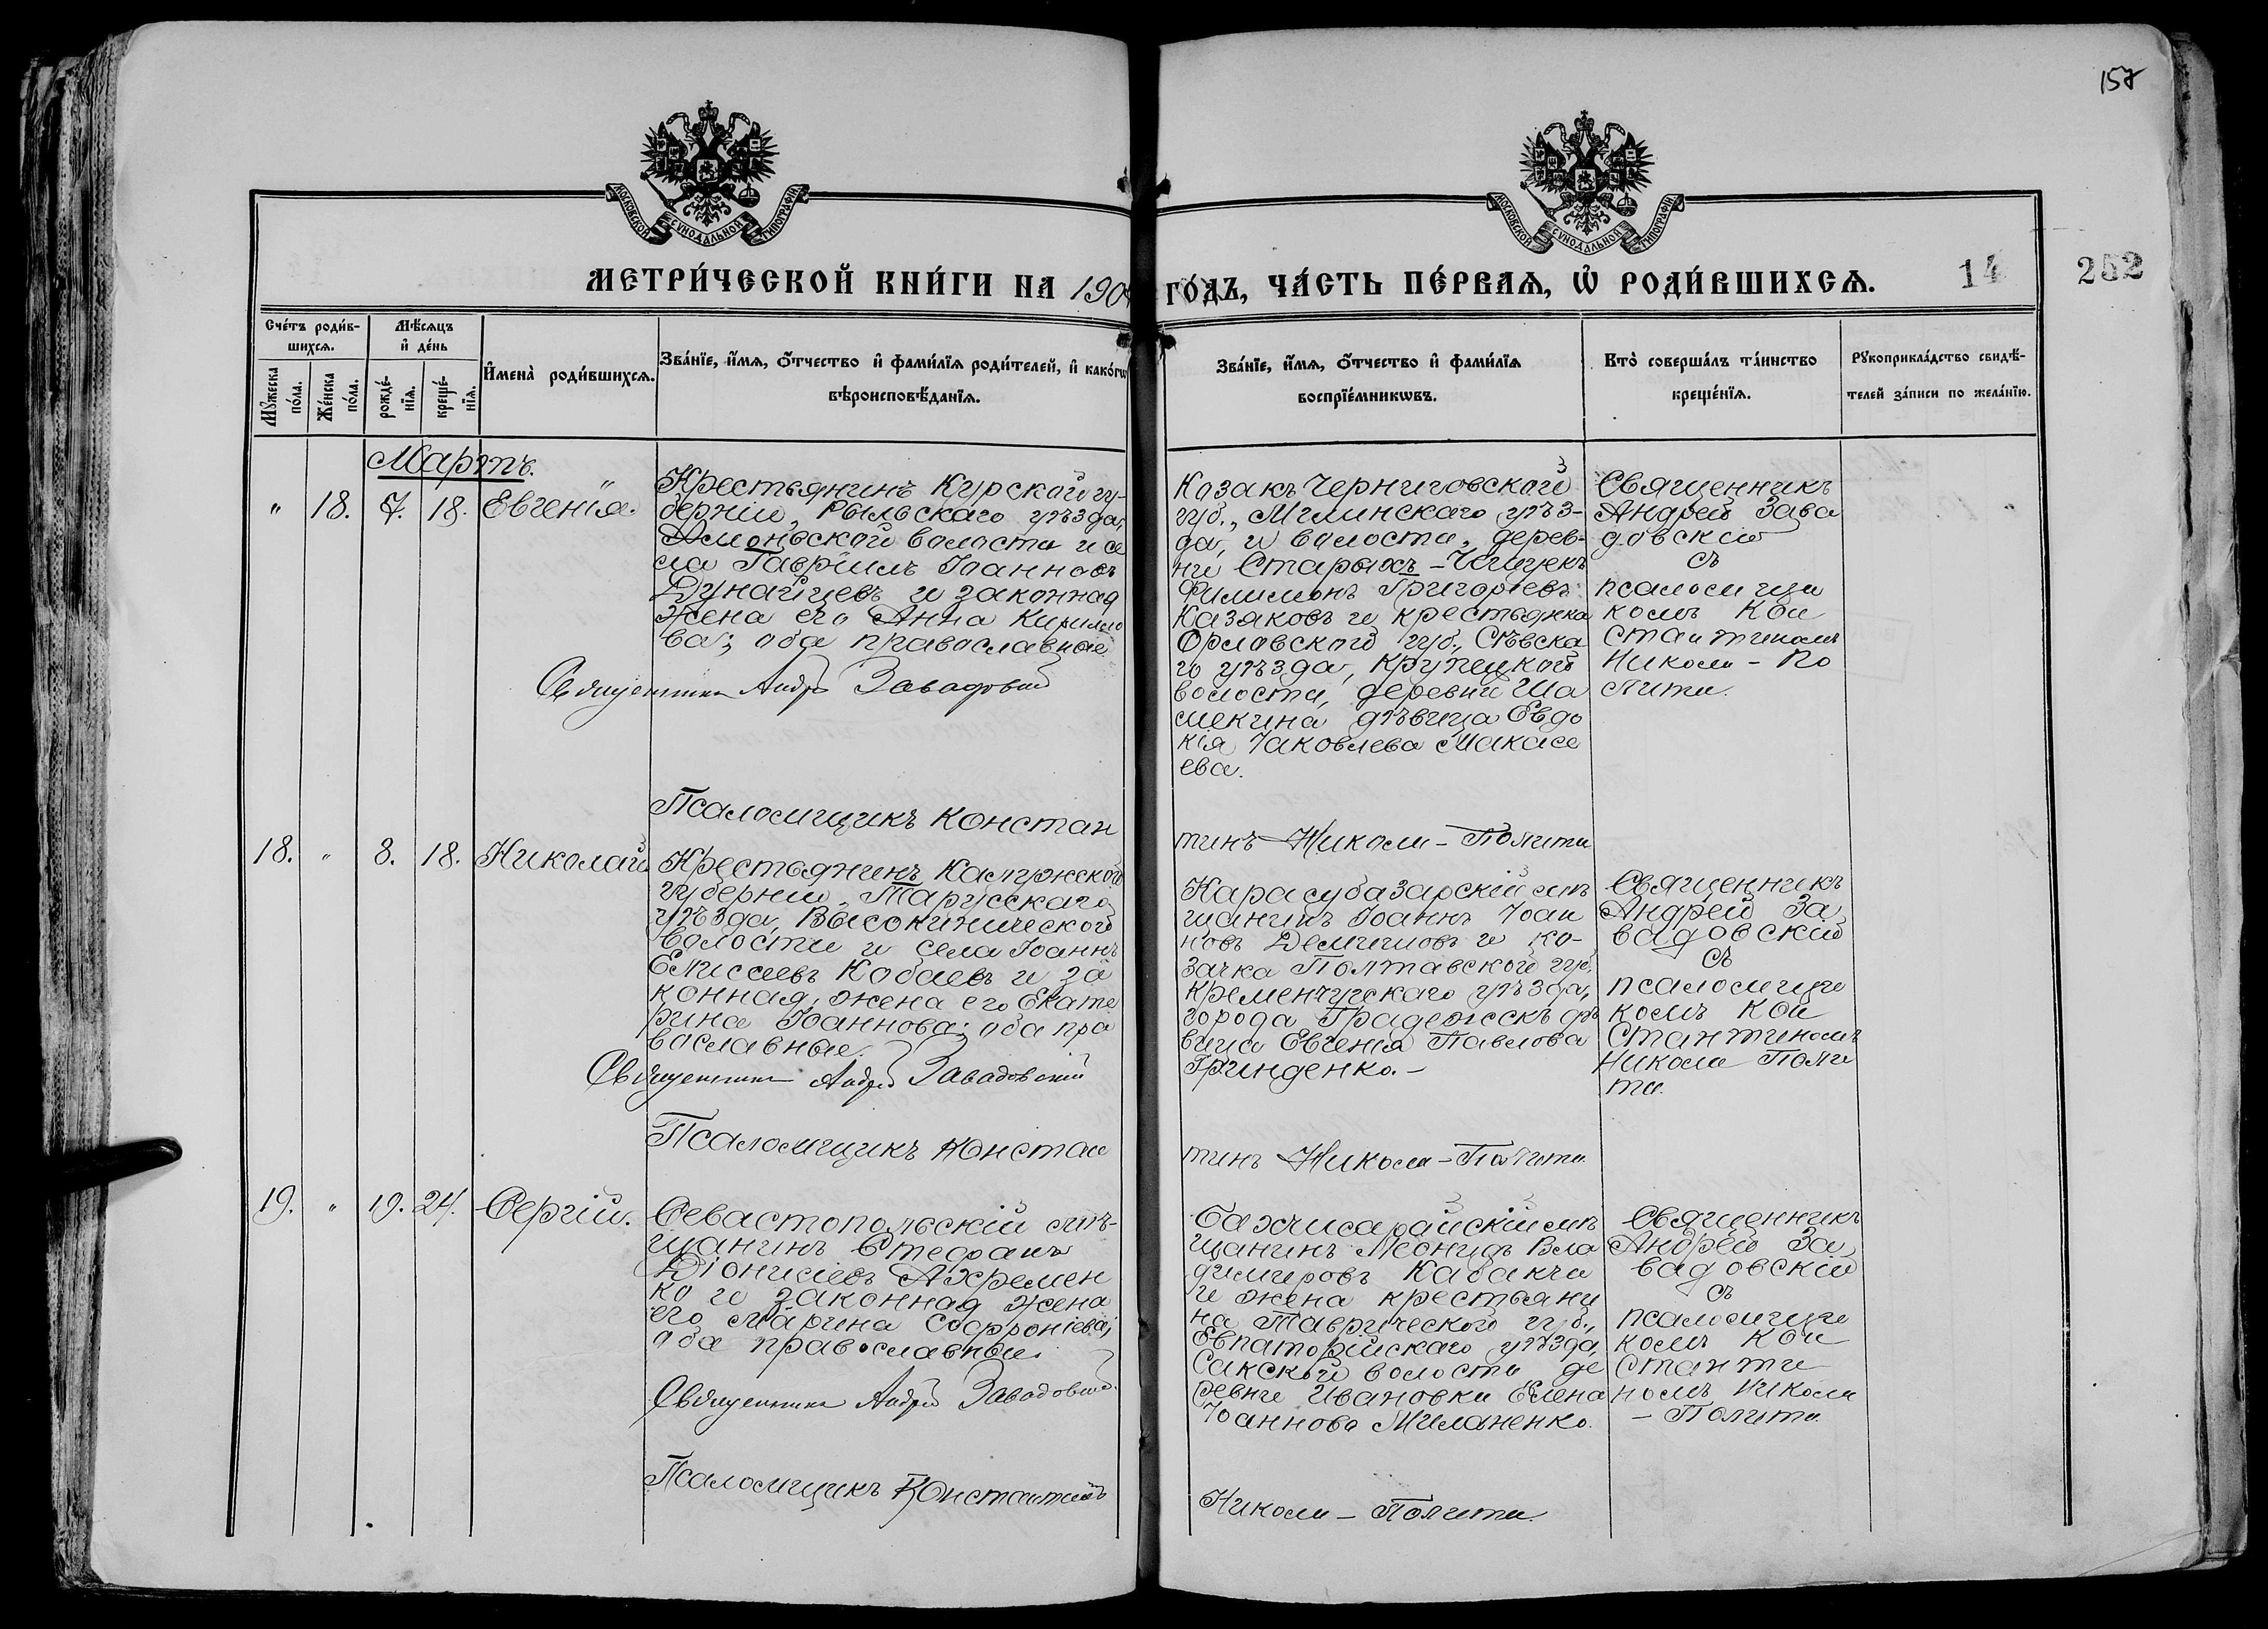 157
МОСКОВСКОЙ СѴНОДАЛЬНОЙ ТИПОГРАФІИ
МОСКОВСКОЙ СѴНОДАЛЬНОЙ ТИПОГРАФІИ
МЕТРИ́ЧЕСКОЙ КНИ́ГИ НА 190
ГО́ДЪ, ЧА́СТЬ ПЕ́РВАѦ, Ѿ РОДИ́ВШИХСѦ.
14
252
Сче́тъ роди́в-
шихсѧ.
Мꙋ́жеска
по́ла.
Же́нска
по́ла.
Мѣ́сѧцъ
и҆ де́нь
рожде́-
нїѧ.
креще́-
нїѧ.
И҆мена̀ роди́вшихсѧ.
Зва́нїе, и҆́мѧ, ѻ҆́тчество и҆ фами́лїѧ роди́телей, и҆ како́гѡ
вѣроисповѣ́данїѧ.
Зва́нїе, и҆́мѧ, ѻ҆́тчество и҆ фами́лїѧ
воспрїе́мникѡвъ.
Кто̀ соверша́лъ та́инство
креще́нїѧ.
Рꙋкоприкла́дство свидѣ́-
телей за́писи по жела́нїю.
Мартъ.
" 18. 7. 18. Евгенія.
Крестьянинъ Курской гу-
берніи, Рыльскаго уѣзда,
волости и се
ла Гавріилъ Іоанновъ
Дунайцевъ и законная
жена его Анна Кирило
ва; оба православные
Священникъ Андрей Завадовскій
Псаломщикъ Констан
Козакъ Черниговской
губ., Мглинскаго уѣз-
да, и волости, дерев-
ни Старыхъ-Чешуекъ
Филимонъ Григорьевъ
Казаковъ и крестьянка
Орловской губ., Сѣвска
го уѣзда, Крупецкой
волости, деревни Ша
мекина дѣвица Евдо
кія Іаковлева Макасе
ева.
тинъ Николи-Полити
Священникъ
Андрей Зава
довскій
съ
псаломщи
комъ Кон
стантиномъ
Николи-По
лити.
18. " 8. 18. Николай
Крестьянинъ Калужской
губерніи, Тарусскаго
уѣзда, Высокиничской
волости и села Іоаннъ
Елисеевъ Кобаевъ и за
конная жена его Екате
рина Іоаннова; оба пра
вославные.
Священникъ Андрей Завадовскій
Псаломщикъ Констан
Карасубазарскій мѣ
щанинъ Іоаннъ Іоан
новъ Демишовъ и ко-
зачка Полтавской губ.
Кременчугскаго уѣзда,
города Градежскъ дѣ
вица Евгенія Павлова
Гринденко.-
тинъ Николи-Полити.
Священникъ
Андрей За
вадовскій
съ
псаломщи
комъ Кон
стантиномъ
Николи Поли
ти.
19. " 19. 24. Сергій.
Севастопольскій мѣ-
щанинъ Стефанъ
Діонисіевъ Ахремен
ко и законная жена
его Марина Софроніева;
оба православные.
Священникъ Андрей Завадовскій
Псаломщикъ Константинъ
Бахчисарайскій мѣ
щанинъ Леонидъ Вла
димировъ Кабакчи
и жена крестьяни
на Таврической губ.,
Евпаторійскаго уѣзда,
Сакской волости де
ревни Ивановки Елена
Іоаннова Миланенко.
Николи-Полити.
Священникъ
Андрей За
вадовскій
съ
псаломщи
комъ Кон
станти
номъ Николи
-Полити.